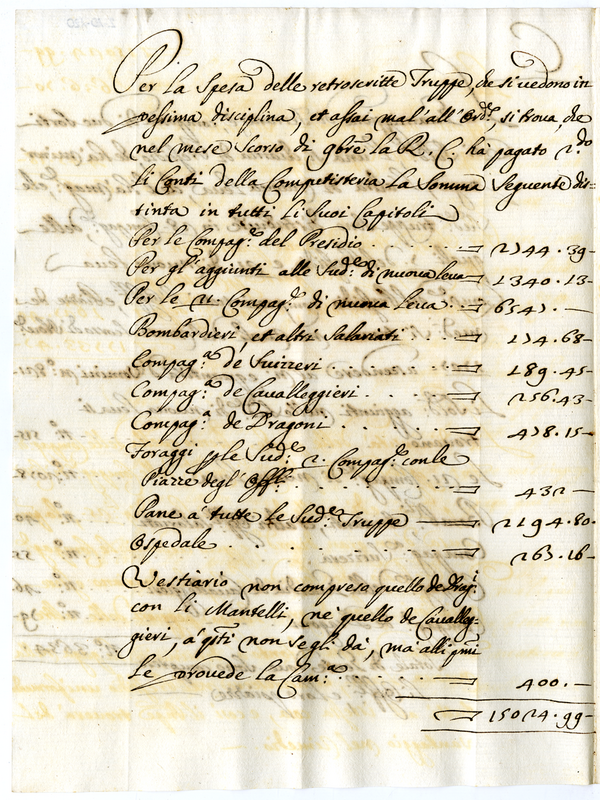 Per la Spesa delle retroscritte Truppe, che si vedono in
pessima disciplina, et assai mal' all' ord.ᵉ, si trova, che
nel mese scorso di 9bre la R. C. hà pagato 2.do
li Conti della Computisteria la Somma Seguente dis=
tinta in tutti li suoi Capitoli
Per le Compag.ᵉ del Presidio . . . . = 2744.39-
Per gl'aggiunti alle Sud.ᵉ di nuova leva = 1340.13-
Per le 21. Compag.ᵉ di nuova leva . . = 6547.—
Bombardieri, et altri Salariati . . . = 174.68-
Compag.ᵃ de Suizzeri . . . . = 189.45-
Compag.ᵃ de Cavalleggieri . . . . = 256.43-
Compag.ᵃ de Dragoni . . . . = 478.15-
Foraggi p le Sud.ᵉ 2. Compag.ᵉ con le
Piazze degl' Off.li . . . . = 432—
Pane a' tutte le Sud.ᵉ Truppe — = 2194.80-
Ospedale . . . . = 267.16-
Vestiario non compreso quello de Drag.ⁱ
con li Mantelli, ne' quello de Cavalleg-
gieri, a' q̃ti non se gli dà, ma' alli p̃mi
le provede la Cam.ᵃ . . . = 400.—
= 15024.99-